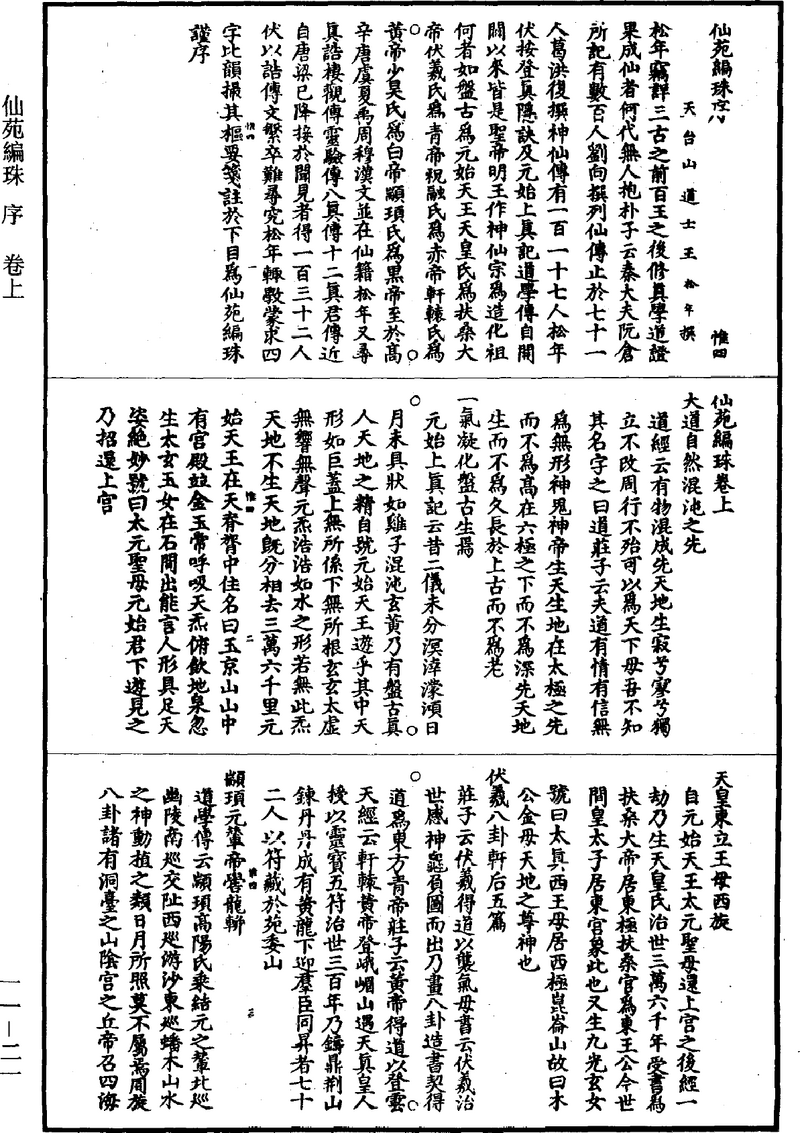 仙苑編珠　序　卷上
仙苑編珠序 惟四
天台山道士王松年撰
松年竊詳三古之前百王之後修真學道證
果成仙者何代無人抱朴子云秦大夫阮倉
所記有數百人劉向撰列仙傳止於七十一
人葛洪復撰神仙傳有一百一十七人松年
伏按登真隱訣及元始上真記道學傳自開
闢以來皆是聖帝明王作神仙宗為造化祖
何者如盤古為元始天王天皇氏為扶桑大
帝伏羲氏為青帝祝融氏為赤帝軒轅氏為
黃帝少昊氏為白帝顓頊氏為黑帝至於高
辛唐虞夏禹周穆漢文並在仙籍松年又尋
真誥樓觀傳靈驗傳八真傳十二真君傳近
自唐梁已降接於聞見者得一百三十二人
伏以誥傳文繁卒難尋究松年輒斆蒙求四
字比韻撮其樞要箋註於下目為仙苑編珠
謹序
仙苑編珠卷上
大道自然混沌之先
道經云有物混成先天地生寂兮寥兮獨
立不改周行不殆可以為天下母吾不知
其名字之曰道莊子云夫道有情有信無
為無形神鬼神帝生天生地在太極之先
而不為高在六極之下而不為深先天地
生而不為久長於上古而不為老
一氣凝化盤古生焉
元始上真記云昔二儀未分溟涬濛澒日
月未具狀如雞子混沌玄黃乃有盤古真
人天地之精自號元始天王遊乎其中天
形如巨蓋上無所係下無所根玄玄太虛
無響無聲元炁浩浩如水之形若無此炁
天地不生天地既分相去三萬六千里元
始天王在天脊膂中住名曰玉京山山中
有宮殿並金玉常呼吸天炁俯飲地泉忽
生太玄玉女在石間出能言人形具足天
姿絕妙號曰太元聖母元始君下遊見之
乃招還上宮
天皇東立王母西旋
自元始天王太元聖母還上宮之後經一
劫乃生天皇氏治世三萬六千年受書為
扶桑大帝居東極扶桑宮為東王公今世
間皇太子居東宮象此也又生九光玄女
號曰太真西王母居西極崑崙山故曰木
公金母天地之尊神也
伏羲八卦軒后五篇
莊子云伏羲得道以襲氣母書云伏羲治
世感神龜負圖而出乃畫八卦造書契得
道為東方青帝莊子云黃帝得道以登雲
天經云軒轅黃帝登峨嵋山遇天真皇人
授以靈寶五符治世三百年乃鑄鼎荊山
鍊丹丹成有黃龍下迎羣臣同昇者七十
二人以符藏於苑委山
顓頊元輦帝嚳龍軿
道學傳云顓頊高陽氏乘結元之輦北巡
幽陵南巡交阯西巡游沙東巡蟠木山水
之神動植之類日月所照莫不屬焉周旋
八卦諸有洞臺之山陰宮之丘帝召四海
一一—二一